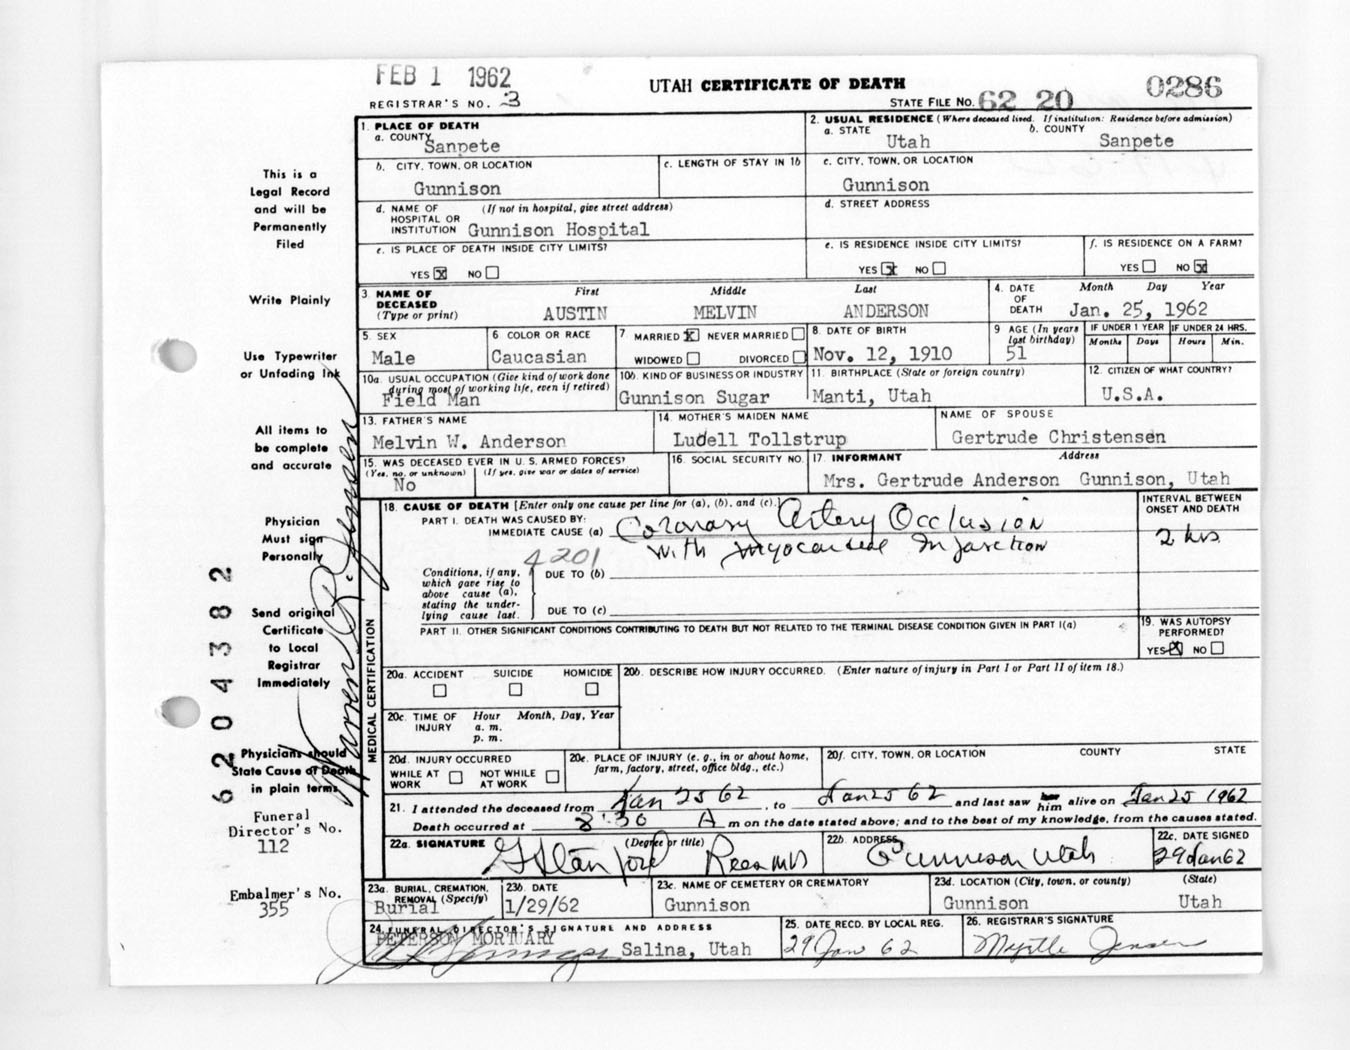 FEB 1 1962
UTAH CERTIFICATE OF DEATH
0286
REGISTRAR'S NO. 3
STATE FILE NO. 62 20
This is a
Legal Record
and will be
Permanently
Filed
Write Plainly
Use Typewriter
or Unfading Ink
All items to
be complete
and accurate
Physician
Must sign
Personally
Send original
Certificate
to Local
Registrar
Immediately
Physicians should
State Cause of Death
in plain terms
Funeral
Director's No.
112
Embalmer's No.
355
6204382
Warren R. Jensen
1. PLACE OF DEATH
a. COUNTY
Sanpete
2. USUAL RESIDENCE (Where deceased lived. If institution: Residence before admission)
a. STATE b. COUNTY
Utah Sanpete
b. CITY, TOWN, OR LOCATION
Gunnison
c. LENGTH OF STAY IN 1b
c. CITY, TOWN, OR LOCATION
Gunnison
d. NAME OF (If not in hospital, give street address)
HOSPITAL OR
INSTITUTION Gunnison Hospital
d. STREET ADDRESS
e. IS PLACE OF DEATH INSIDE CITY LIMITS?
YES X NO
e. IS RESIDENCE INSIDE CITY LIMITS?
YES X NO
f. IS RESIDENCE ON A FARM?
YES NO X
3. NAME OF First Middle Last
DECEASED
(Type or print) AUSTIN MELVIN ANDERSON
4. DATE Month Day Year
OF
DEATH Jan. 25, 1962
5 SEX
Male
6 COLOR OR RACE
Caucasian
7 MARRIED X NEVER MARRIED
WIDOWED DIVORCED
8. DATE OF BIRTH
Nov. 12, 1910
9 AGE (In years
last birthday)
51
IF UNDER 1 YEAR IF UNDER 24 HRS.
Months Days Hours Min.
10a. USUAL OCCUPATION (Give kind of work done
during most of working life, even if retired)
Field Man
10b. KIND OF BUSINESS OR INDUSTRY
Gunnison Sugar
11. BIRTHPLACE (State or foreign country)
Manti, Utah
12. CITIZEN OF WHAT COUNTRY?
U.S.A.
13. FATHER'S NAME
Melvin W. Anderson
14. MOTHER'S MAIDEN NAME
Ludell Tollstrup
NAME OF SPOUSE
Gertrude Christensen
15. WAS DECEASED EVER IN U. S. ARMED FORCES?
(Yes, no, or unknown) (If yes, give war or dates of service)
No
16. SOCIAL SECURITY NO.
17. INFORMANT Address
Mrs. Gertrude Anderson Gunnison, Utah
MEDICAL CERTIFICATION
18. CAUSE OF DEATH [Enter only one cause per line for (a), (b), and (c).]
PART I. DEATH WAS CAUSED BY:
IMMEDIATE CAUSE (a) Coronary Artery Occlusion
with Myocardial Infarction
4201
Conditions, if any,
which gave rise to
above cause (a),
stating the under-
lying cause last.
DUE TO (b)
DUE TO (c)
INTERVAL BETWEEN
ONSET AND DEATH
2 hrs
PART II. OTHER SIGNIFICANT CONDITIONS CONTRIBUTING TO DEATH BUT NOT RELATED TO THE TERMINAL DISEASE CONDITION GIVEN IN PART I(a)
19. WAS AUTOPSY
PERFORMED?
YES X NO
20a. ACCIDENT SUICIDE HOMICIDE
20b. DESCRIBE HOW INJURY OCCURRED. (Enter nature of injury in Part I or Part II of item 18.)
20c. TIME OF Hour Month, Day, Year
INJURY a. m.
p. m.
20d. INJURY OCCURRED
WHILE AT NOT WHILE
WORK AT WORK
20e. PLACE OF INJURY (e. g., in or about home,
farm, factory, street, office bldg., etc.)
20f. CITY, TOWN, OR LOCATION COUNTY STATE
21. I attended the deceased from Jan 25 62, to Jan 25 62 and last saw her him alive on Jan 25 1962
Death occurred at 8:30 A m on the date stated above; and to the best of my knowledge, from the causes stated.
22a. SIGNATURE (Degree or title)
G Stanford Rees MD
22b. ADDRESS
Gunnison Utah
22c. DATE SIGNED
29 Jan 62
23a. BURIAL, CREMATION,
REMOVAL (Specify)
Burial
23b. DATE
1/29/62
23c. NAME OF CEMETERY OR CREMATORY
Gunnison
23d. LOCATION (City, town, or county) (State)
Gunnison Utah
24. FUNERAL DIRECTOR'S SIGNATURE AND ADDRESS
PETERSON MORTUARY
Salina, Utah
25. DATE RECD. BY LOCAL REG.
29 Jan 62
26. REGISTRAR'S SIGNATURE
Myrtle Jensen